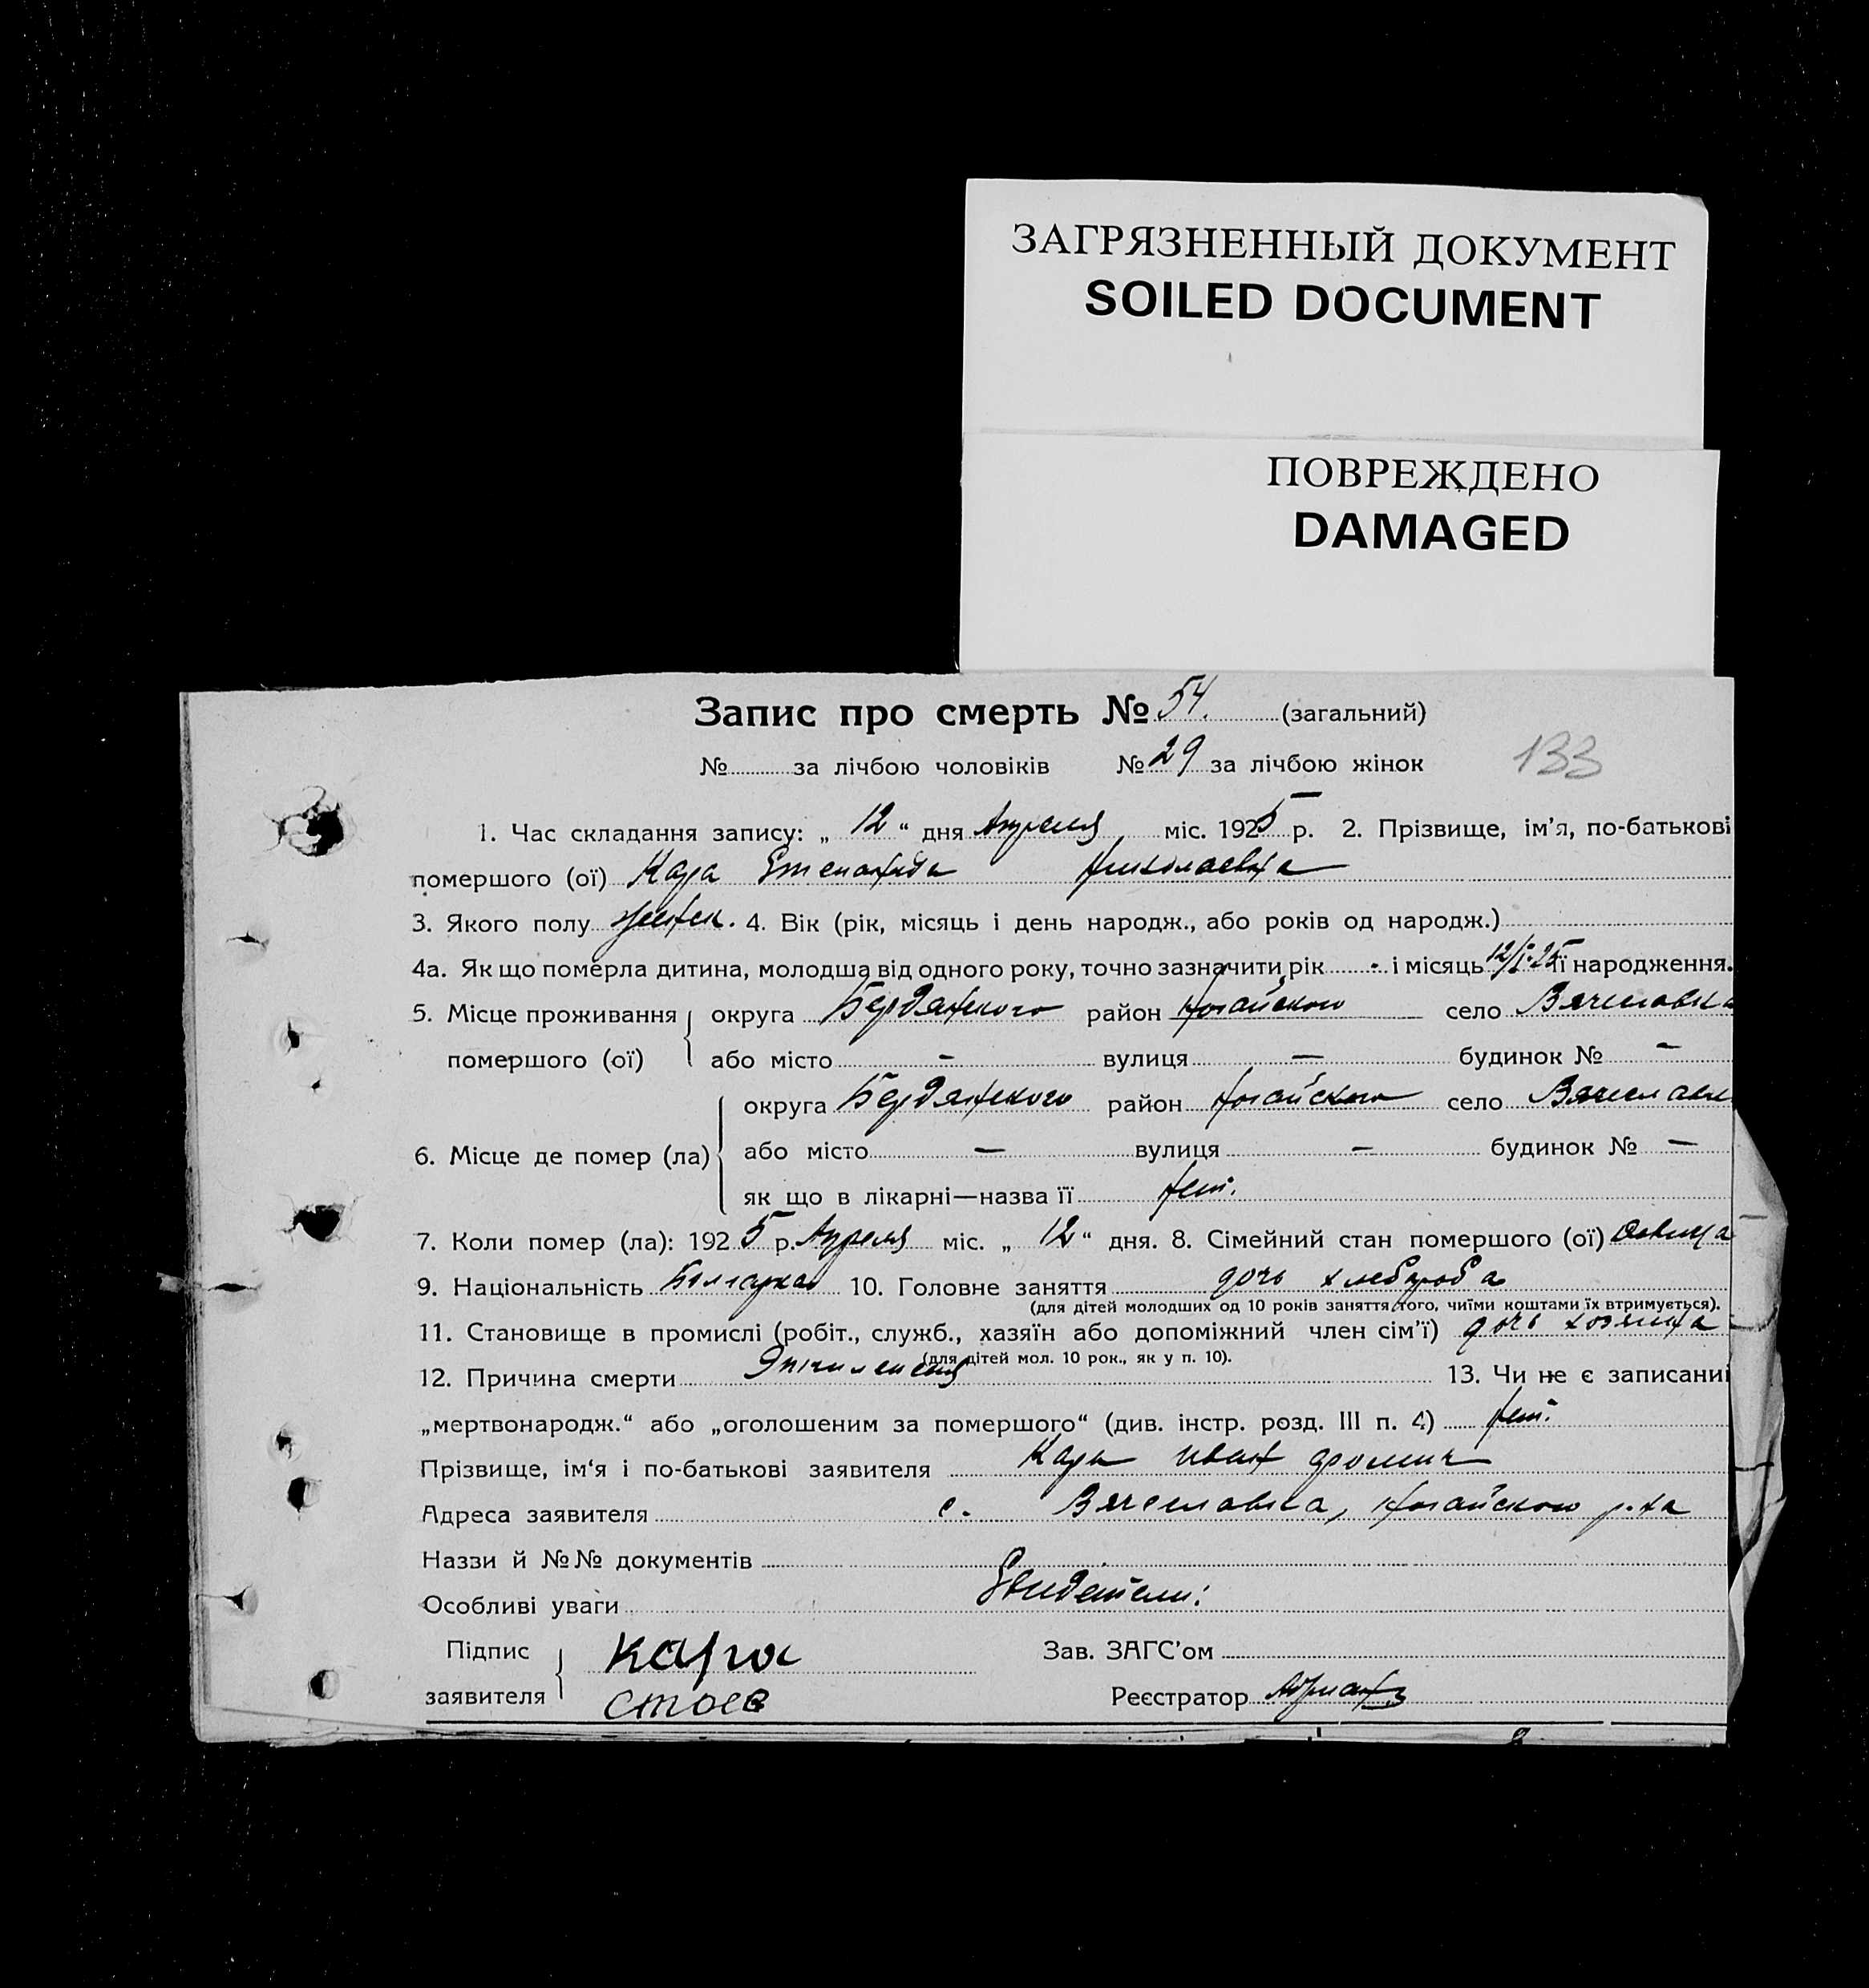 ЗАГРЯЗНЕННЫЙ ДОКУМЕНТ
SOILED DOCUMENT
ПОВРЕЖДЕНО
DAMAGED
Запис про смерть № 54. (загальний)
№ за лічбою чоловіків № 29 за лічбою жінок 133
1. Час складання запису: „ 12 “ дня Апреля міс. 1925 р. 2. Прізвище, ім’я, по-батькові
помершого (ої) Кара Степанида Николаевна
3. Якого полу женск. 4. Вік (рік, місяць і день народж., або років од народж.)
4а. Як що померла дитина, молодша від одного року, точно зазначити рік - і місяць 12/I-25 її народження.
5. Місце проживання округа Бердянского район Ногайского село Вячеславка
помершого (ої) або місто - вулиця — будинок № -
округа Бердянского район Ногайского село Вячеславк
6. Місце де помер (ла) або місто — вулиця — будинок № —
як що в лікарні—назва її нет.
7. Коли помер (ла): 1925 р. Апреля міс. „ 12 “ дня. 8. Сімейний стан помершого (ої) девица
9. Національність Болгарка 10. Головне заняття дочь хлебороба
(для дітей молодших од 10 років заняття того, чиїми коштами їх втримується).
11. Становище в промислі (робіт., служб., хазяїн або допоміжний член сім’ї) дочь хозяина
(для дітей мол. 10 рок., як у п. 10).
12. Причина смерти 13. Чи не є записани
„мертвонародж.“ або „оголошеним за помершого“ (див. інстр. розд. III п. 4) нет.
Прізвище, ім‘я і по-батькові заявителя Кара Иван
Адреса заявителя с. Вячеславка, Ногайского р-на
Назви й №№ документів
Особливі уваги Свидетели:
Підпис Кара Зав. ЗАГС’ом
заявителя стоев Реєстратор